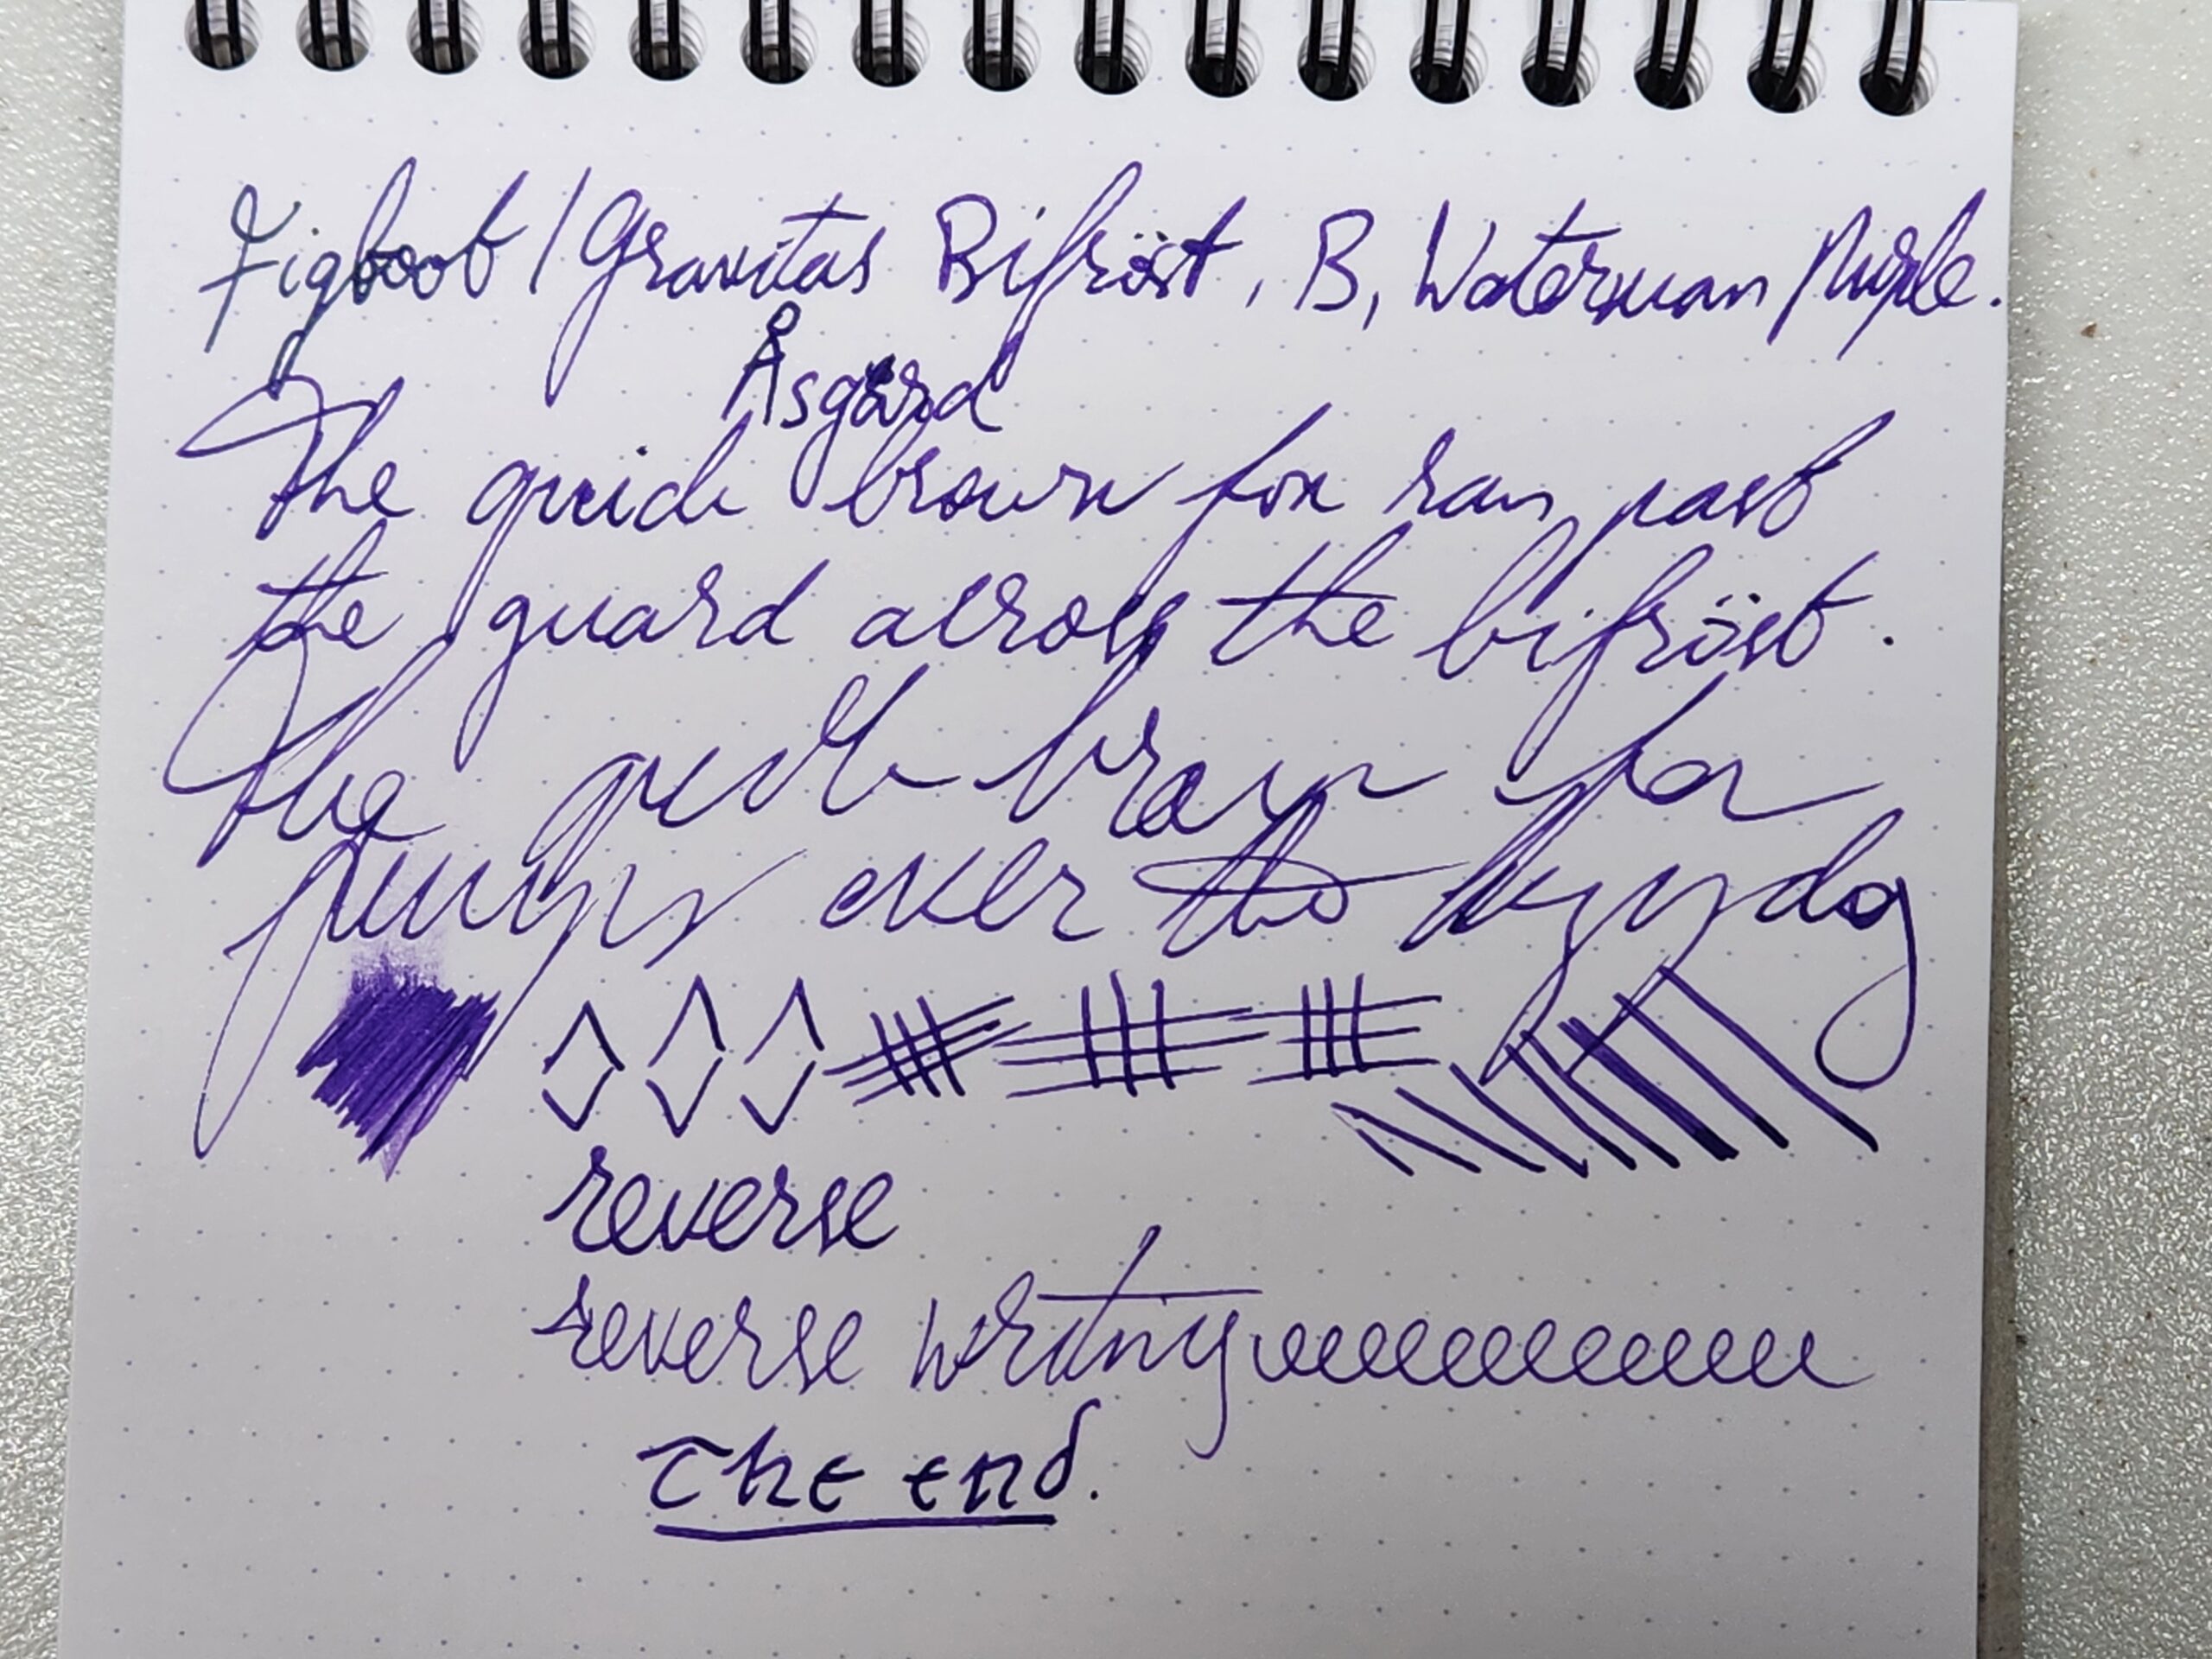 Figboot / Gravitas Bifröst, B, Waterman Purple.
Åsgård
The quick brown fox ran past
the guard across the bifröst.
The quick brown fox
jumps over the lazy dog
reverse
reverse writing eeeeeeeeeeeee
The end.